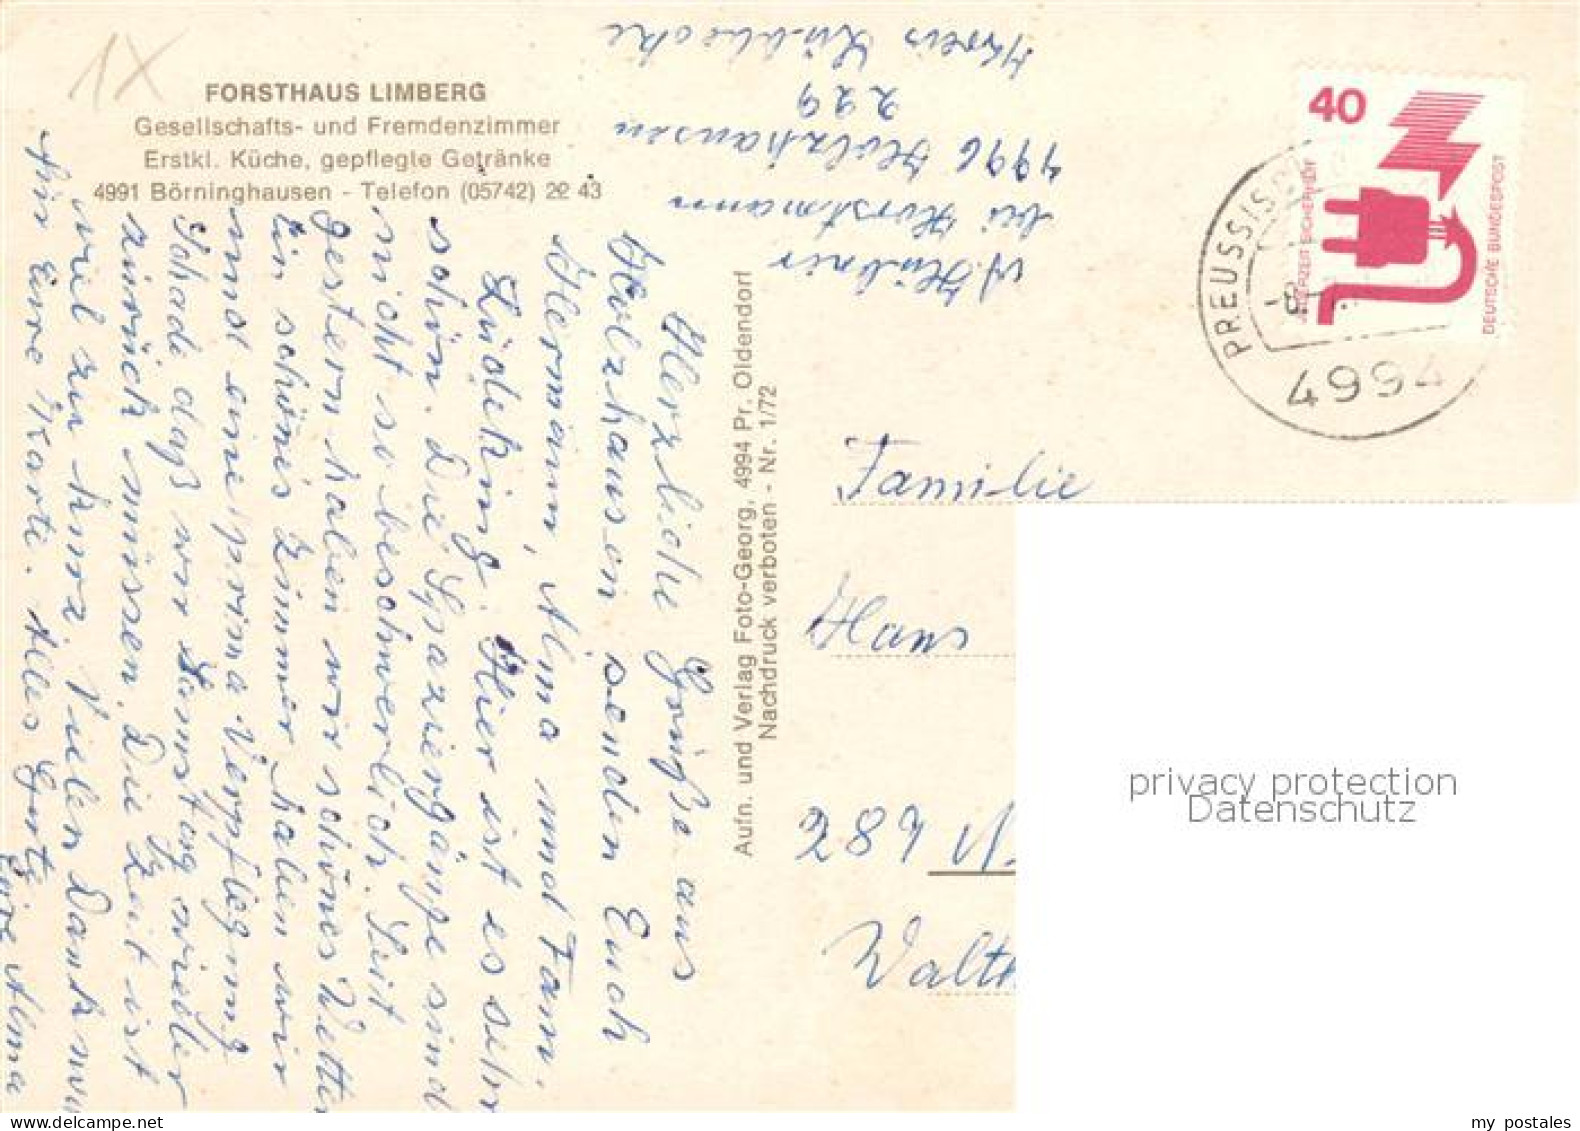 1X
FORSTHAUS LIMBERG
Gesellschafts- und Fremdenzimmer
Erstkl. Küche, gepflegte Getränke
4991 Börninghausen - Telefon (05742) 22 43
A. Hübner
bei Horstmann
4996 Holzhausen
229
Kreis Lübbecke
Herzliche Grüße aus
Holzhausen senden Euch
Hermann, Alma und Fam.
Lüdeking. Hier ist es sehr
schön. Die Spaziergänge sind
nicht so beschwerlich. Seit
gestern haben wir schönes Wetter
Ein schönes Zimmer haben wir
und eine prima Verpflegung
Schade daß wir Samstag wieder
zurück müssen. Die Zeit ist
viel zu kurz. Vielen Dank nun
für Eure Karte. Alles Gute
Eure Alma
Aufn. und Verlag Foto-Georg, 4994 Pr. Oldendorf
Nachdruck verboten - Nr. 1/72
40
JEDERZEIT SICHERHEIT
DEUTSCHE BUNDESPOST
PREUSSISCH
4994
Familie
Hans
287
Walth
privacy protection
Datenschutz
my postales
www.delcampe.net